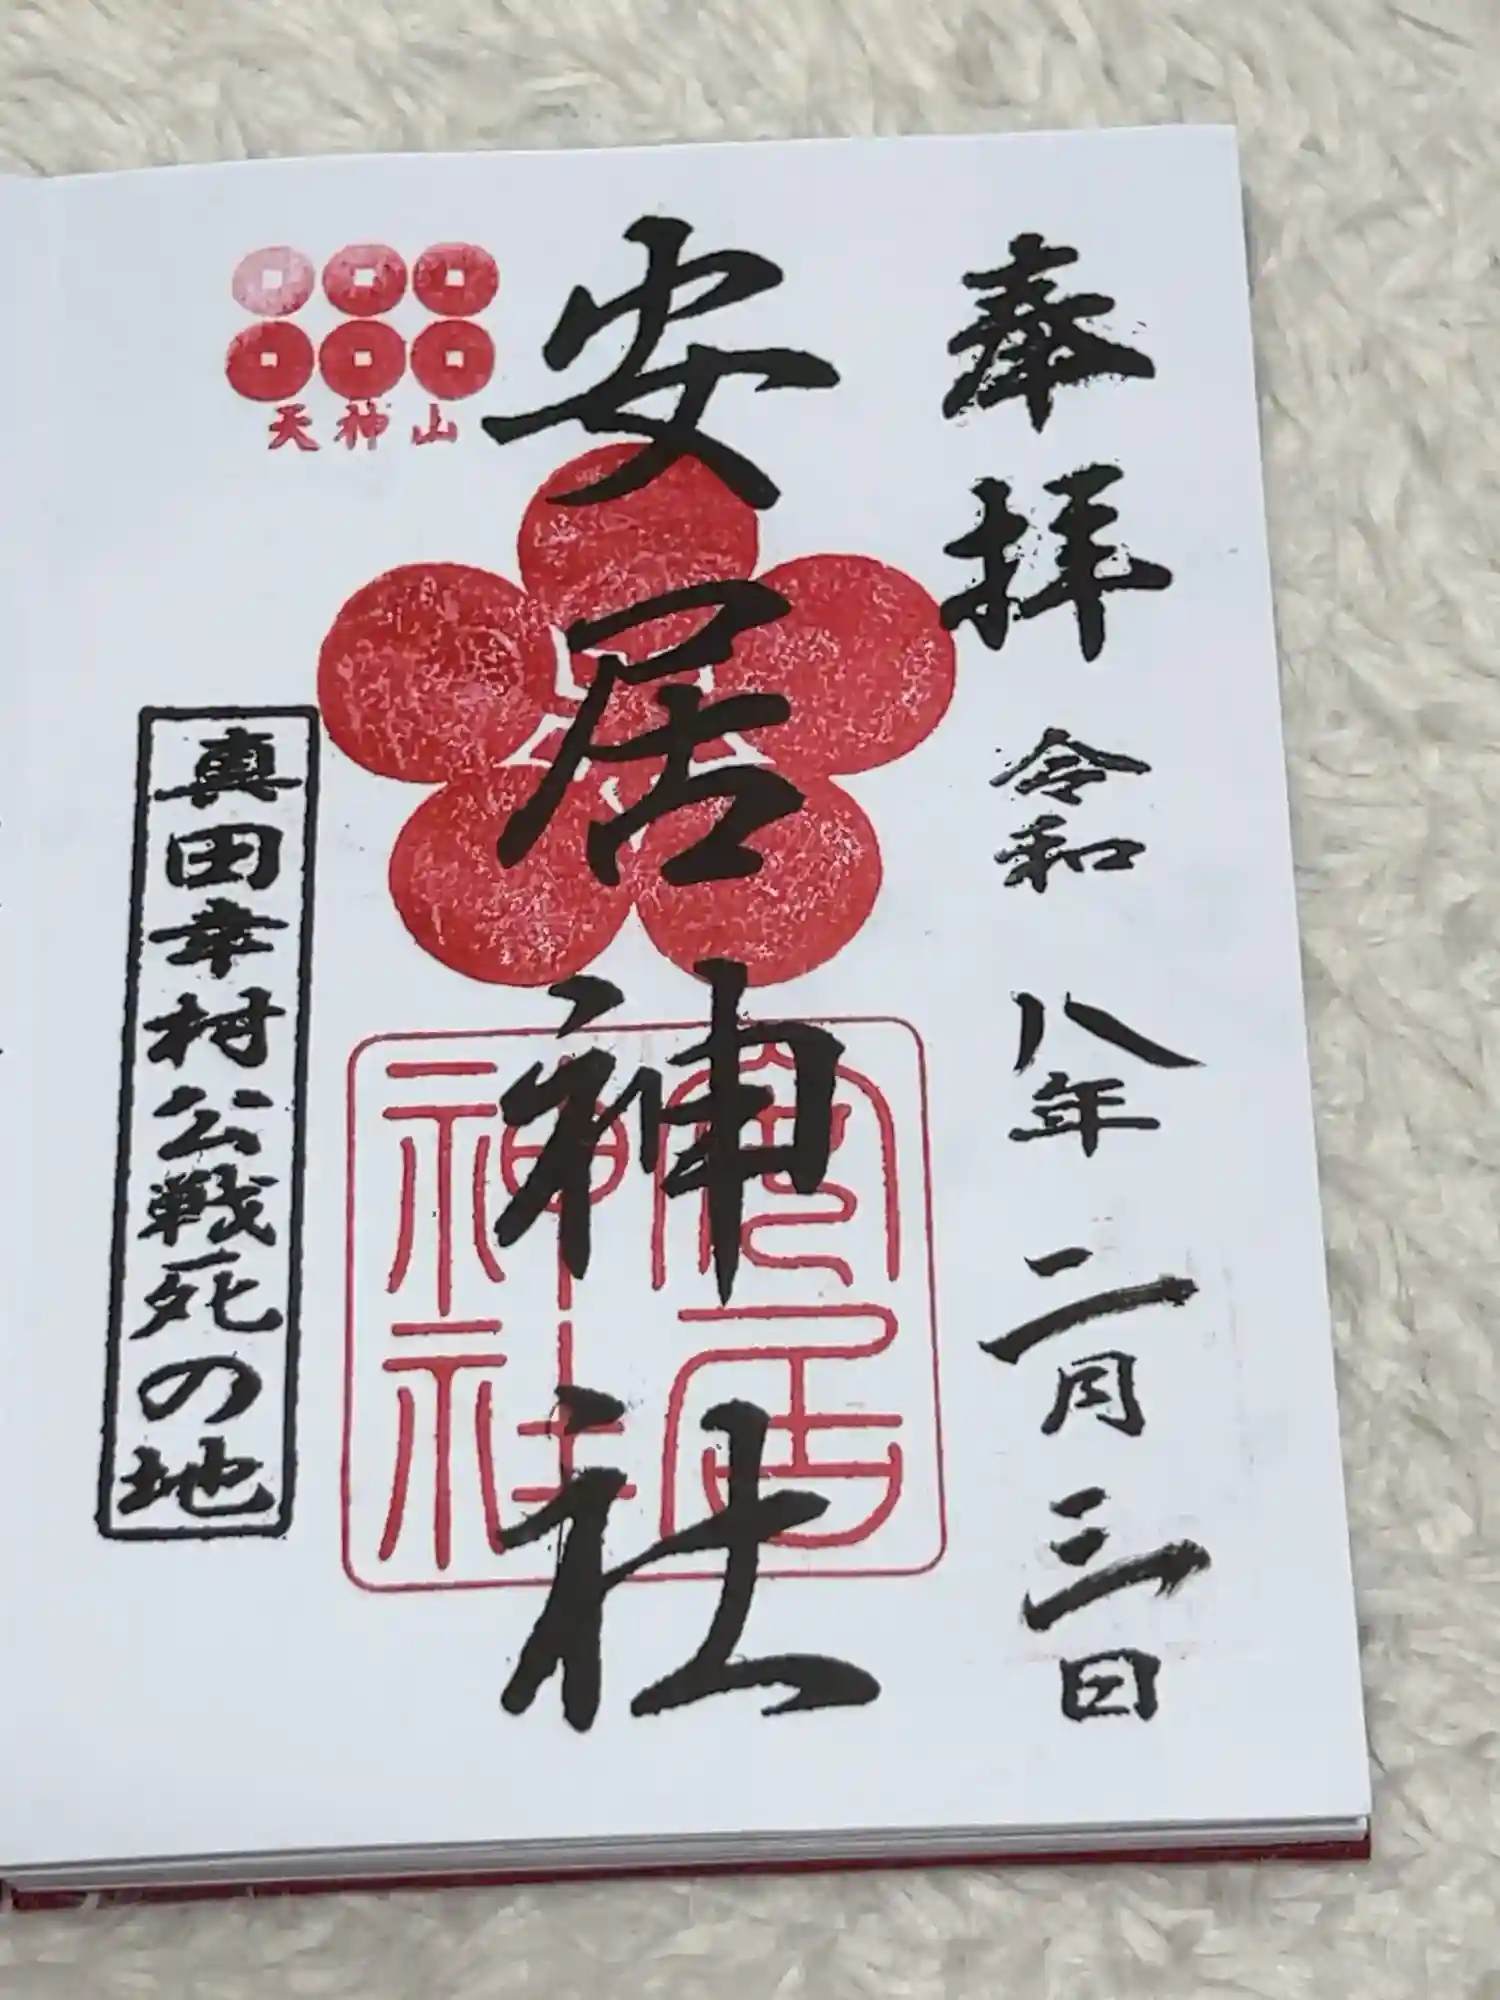 奉拝 令和八年二月三日
安居神社
安居神社
天神山
真田幸村公戦死の地